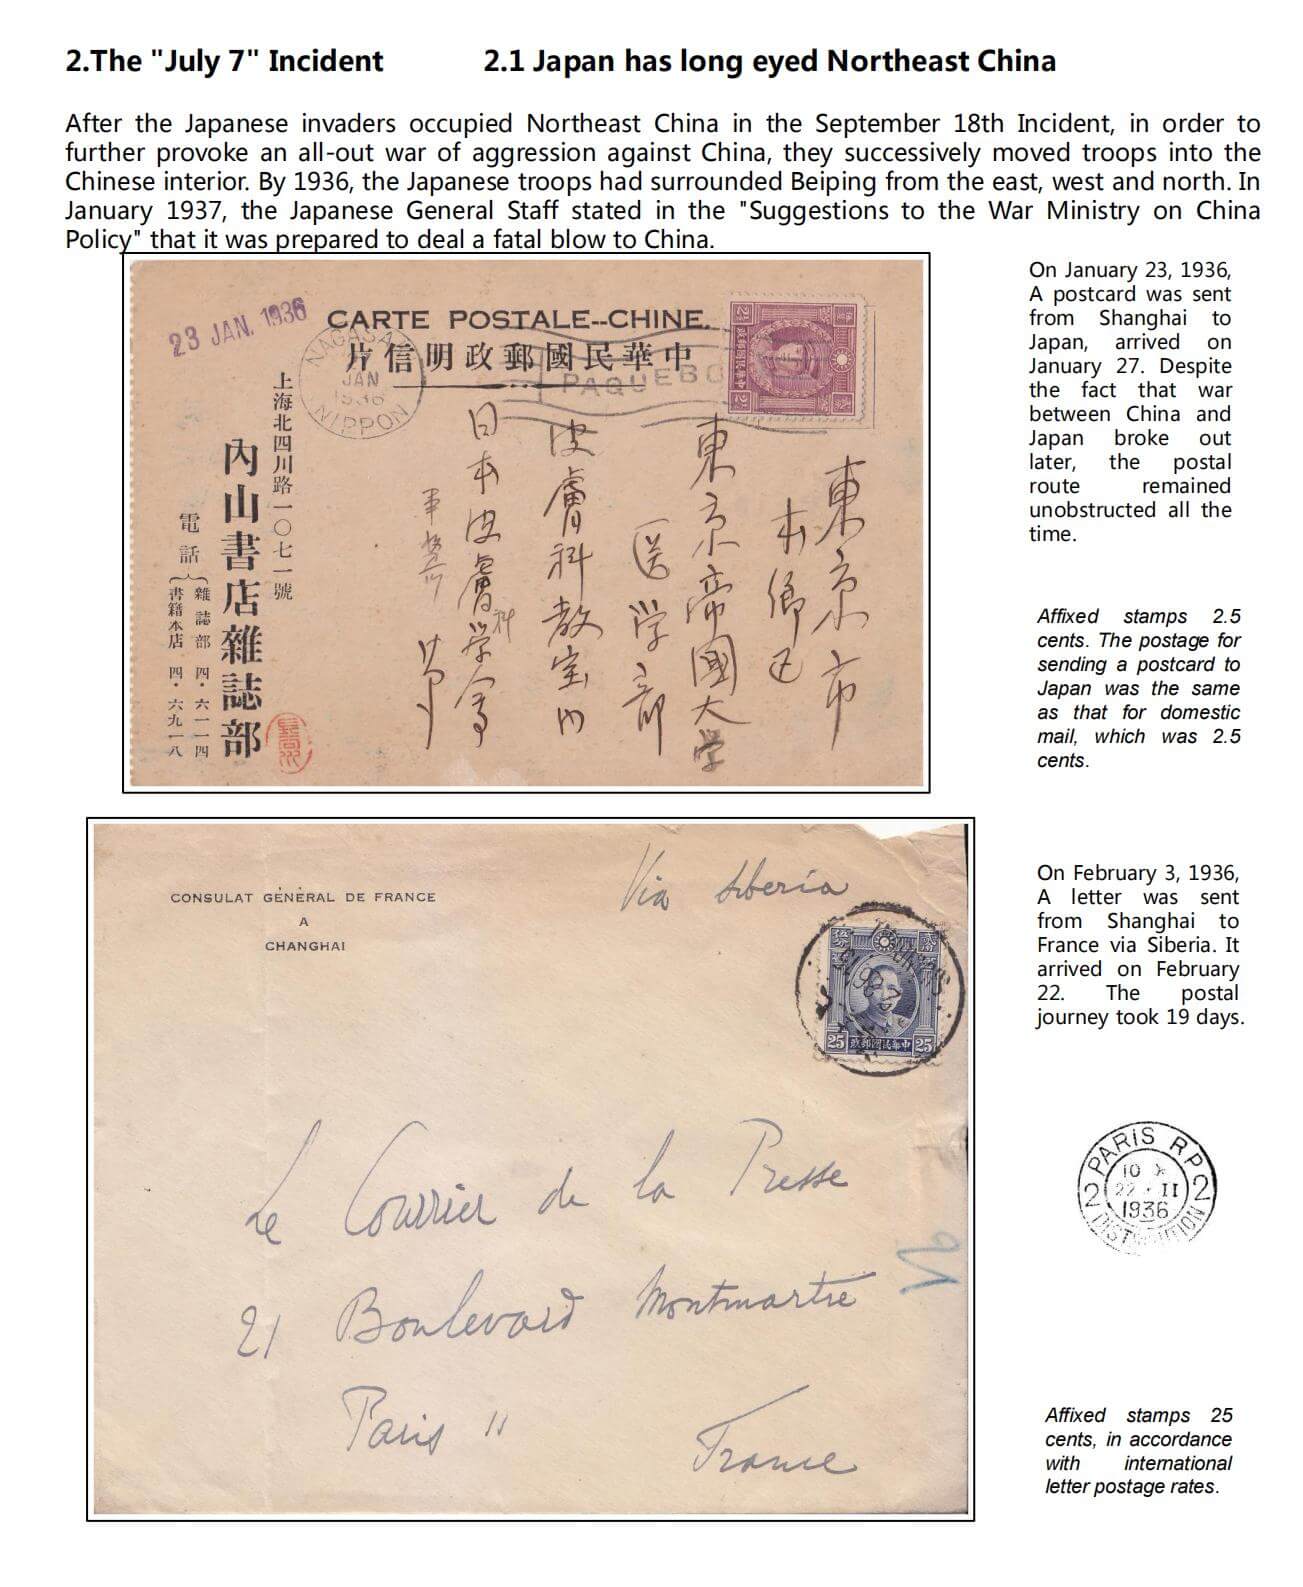 2.The "July 7" Incident
2.1 Japan has long eyed Northeast China
After the Japanese invaders occupied Northeast China in the September 18th Incident, in order to
further provoke an all-out war of aggression against China, they successively moved troops into the
Chinese interior. By 1936, the Japanese troops had surrounded Beiping from the east, west and north. In
January 1937, the Japanese General Staff stated in the "Suggestions to the War Ministry on China
Policy" that it was prepared to deal a fatal blow to China.
23 JAN. 1936
CARTE POSTALE--CHINE.
片信明政郵國民華中
NAGASA
JAN
1936
NIPPON
PAQUEBO
東京市
本郷区
東京帝國大学
医学部
皮膚科教室内
日本皮膚科学会
上海北四川路一〇七一號
內山書店雜誌部
電話
雜誌部 四·六一一四
書籍本店 四·六九一八
On January 23, 1936,
A postcard was sent
from Shanghai to
Japan, arrived on
January 27. Despite
the fact that war
between China and
Japan broke out
later, the postal
route remained
unobstructed all the
time.
Affixed stamps 2.5
cents. The postage for
sending a postcard to
Japan was the same
as that for domestic
mail, which was 2.5
cents.
CONSULAT GÉNÉRAL DE FRANCE
A
CHANGHAI
Via Siberia
25 政郵國民華中 25
Le Courrier de la Presse
21 Boulevard Montmartre
Paris 11
France
On February 3, 1936,
A letter was sent
from Shanghai to
France via Siberia. It
arrived on February
22. The postal
journey took 19 days.
PARIS RP
10
2 22 · II 2
1936
DISTRIBUTION
Affixed stamps 25
cents, in accordance
with international
letter postage rates.